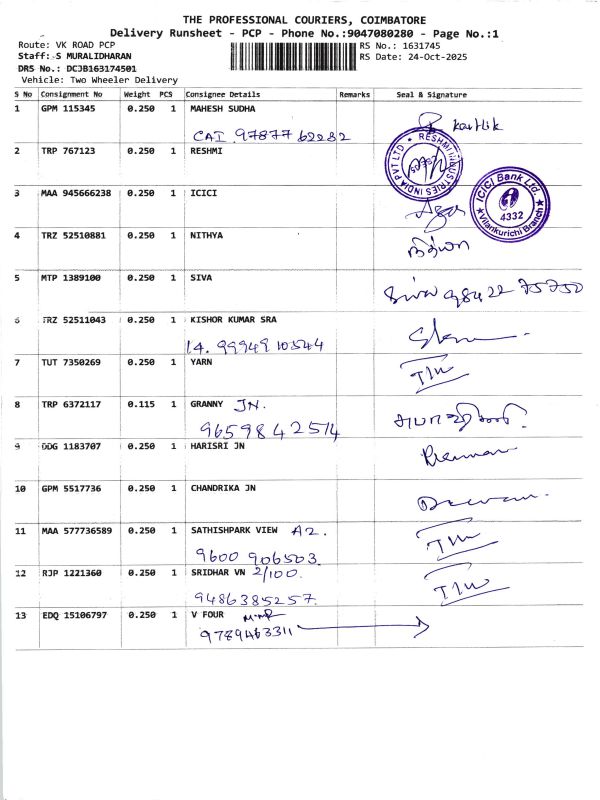 THE PROFESSIONAL COURIERS, COIMBATORE
Delivery Runsheet - PCP - Phone No.:9047080280 - Page No.:1
Route: VK ROAD PCP RS No.: 1631745
Staff: S MURALIDHARAN RS Date: 24-Oct-2025
DRS No.: DCJB163174501
Vehicle: Two Wheeler Delivery
S No Consignment No Weight PCS Consignee Details Remarks Seal & Signature
1 GPM 115345 0.250 1 MAHESH SUDHA
CAI 97877 62282 Karthik
2 TRP 767123 0.250 1 RESHMI
RESHMI INDUSTRIES INDIA PVT LTD
3 MAA 945666238 0.250 1 ICICI
ICICI Bank Ltd.
4332
Vilankurichi Branch
4 TRZ 52510881 0.250 1 NITHYA
நித்யா
5 MTP 1389100 0.250 1 SIVA
சிவா 98422 75750
6 TRZ 52511043 0.250 1 KISHOR KUMAR SRA
14. 99949 10544
7 TUT 7350269 0.250 1 YARN
8 TRP 6372117 0.115 1 GRANNY JN.
9659842514
9 DDG 1183707 0.250 1 HARISRI JN
10 GPM 5517736 0.250 1 CHANDRIKA JN
11 MAA 577736589 0.250 1 SATHISHPARK VIEW A2.
9600 906503.
12 RJP 1221360 0.250 1 SRIDHAR VN 2/100.
9486385257.
13 EDQ 15106797 0.250 1 V FOUR
9789463311